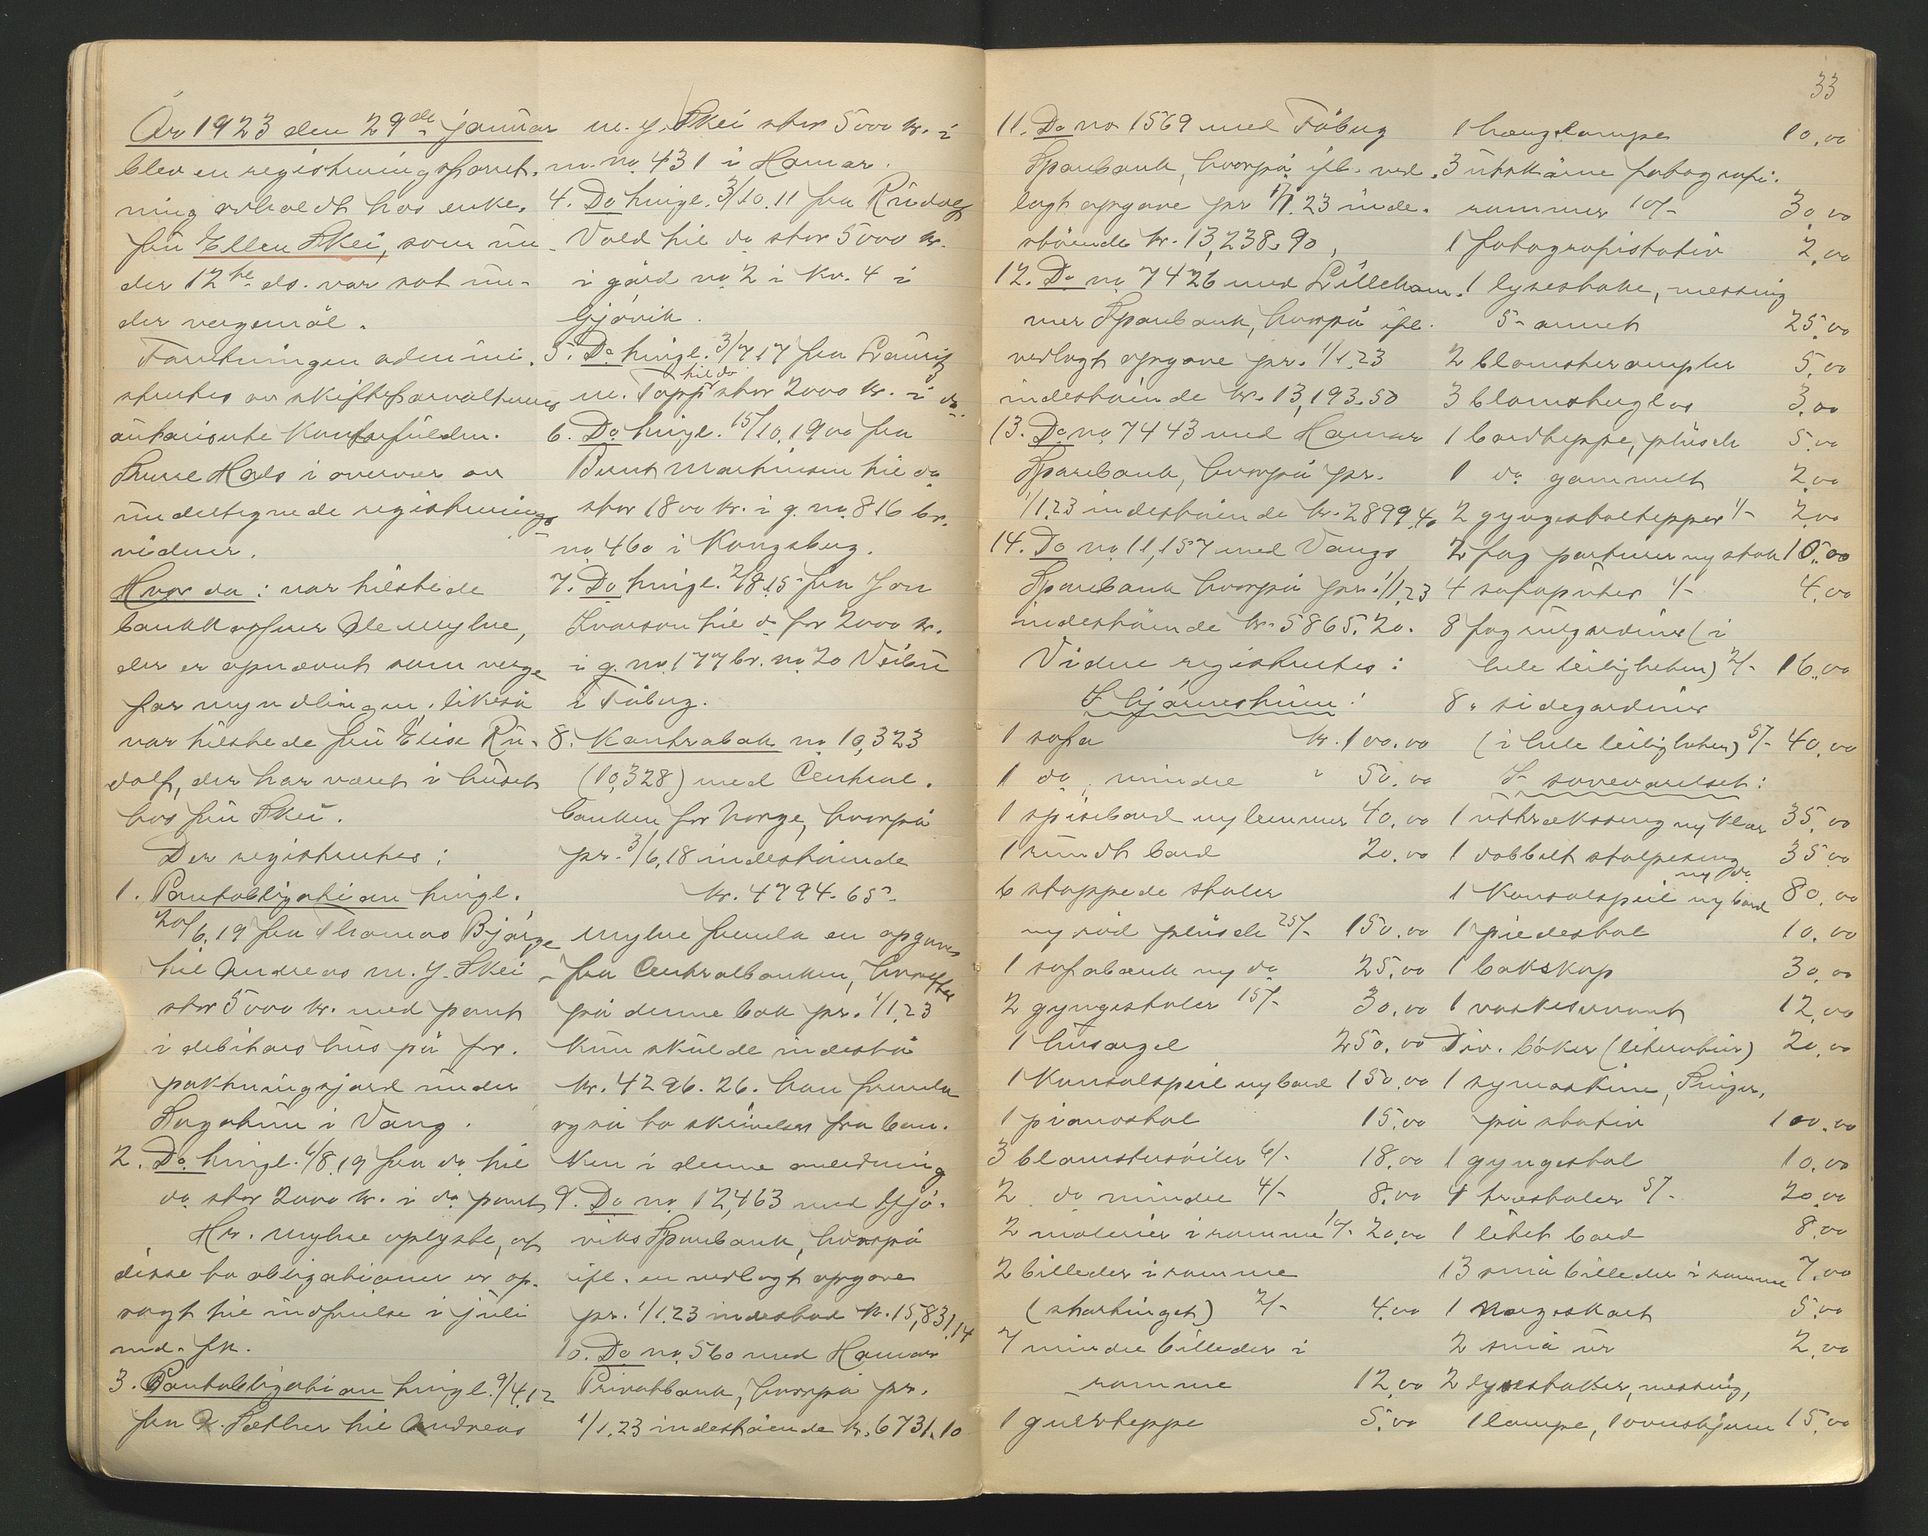 År 1923 den 29de januar
blev en registreringsforret-
ning avholdt hos enke-
fru Ellen Skei, som un-
der 12te ds. var sat un-
der vergemål.
Forretningen admini-
streres av skifteforvalterens
autoriserte kontorfuldm.
Sverre Hals i overvær av
undertegnede registrerings-
vidner.
Hvor da: var tilstede
bankkasserer Ole Myhre,
der er opnævnt som verge
for myndlingen, likeså
var tilstede fru Elise Ru-
dolf, der har været i huset
hos fru Skei.
Der registrertes:
1. Pantobligation tingl.
20/6.19 fra Thomas Bjørge
til Andreas M. J. Skei
stor 5000 kr. med pant
i debitors hus på for-
paktningsjord under
Sagatun i Vang.
2. Do tingl. 1/8.19 fra do til
do stor 2000 kr. i do pant
Hr. Myhre oplyste, at
disse to obligationer er op-
sagt til indfrielse i juli
md. fk.
3. Pantobligation tingl. 9/4.12
fra Sæther til Andreas
M. J. Skei stor 5000 kr. i
m. no 431 i Hamar.
4. Do tingl. 3/10.11 fra Rudolf
Vold til do stor 5000 kr.
i gård no 2 i kv. 4 i
Gjøvik.
5. Do tingl. 3/7.17 fra Lauritz
M. Topp til do stor 2000 kr. i do
6. Do tingl. 15/10.1900 fra
Bernt Martinsen til do
stor 1800 kr. i g. no 816 br.
no 460 i Kongsberg.
7. Do tingl. 2/8.15 fra Jon
Ivarson til do for 2000 kr.
i g. no 177 br. no 20
i Fåberg.
8. Kontrabok no 10,323
(10,328) med Central-
banken for Norge, hvorpå
pr. 3/6.18 indestående
kr. 4794.65
Myhre fremla en opgave
fra Centralbanken, hvorefter
på denne bok pr. 1/1.23
kun skulde indestå
kr. 4296.26. han fremla
også to skrivelser fra ban-
ken i denne anledning
9. Do no 12,463 med Gjø-
viks Sparebank, hvorpå
ifl. en vedlagt opgave
pr. 1/1.23 indestod kr. 15,831.14
10. Do no 560 med Hamar
Privatbank, hvorpå pr.
1/1.23 indestående kr. 6731.10
33
11. Do no 1569 med Fåberg
Sparebank, hvorpå ifl. ved-
lagt opgave pr 1/1.23 inde-
stående kr. 13,238.90,
12. Do no 7426 med Lilleham-
mer Sparebank, hvorpå ifl.
vedlagt opgave pr. 1/1.23
indestående kr. 13,193.50
13. Do no 7443 med Hamar
Sparebank, hvorpå pr.
1/1.23 indestående kr. 2899.40
14. Do no 11,157 med Vangs
Sparebank hvorpå pr. 1/1.23
indestående kr. 5865.20.
Videre registrertes:
I hjørnestuen:
1 sofa kr. 100.00
1 do, mindre " 50.00
1 spisebord m/lemmer 40.00
1 rundt bord 20.00
6 stoppede stoler
m/rød plüsch 25/- 150.00
1 sofabænk m/do 25.00
2 gyngestoler 15/- 30.00
1 husorgel 250.00
1 konsolspeil m/bord 150.00
1 pianostol 15.00
3 blomstersøiler 6/- 18.00
2 do mindre 4/- 8.00
2 malerier i ramme 10/- 20.00
2 billeder i ramme
(stortinget) 2/- 4.00
7 mindre billeder i
ramme 12.00
1 gulvteppe 5.00
1 hængelampe 10.00
3 utskårne fotografi-
rammer 10/- 30.00
1 fotografistativ 2.00
1 lysestake, messing
5-armet 25.00
2 blomsterampler 5.00
3 blomsterglas 3.00
1 bordteppe, plüsch 5.00
1 do gammelt 2.00
2 gyngestoltepper 1/- 2.00
2 fag portierer m/stok 10.00
4 sofaputer 1/- 4.00
8 fag rulgardiner (i
hele leiligheten) 2/- 16.00
8 " sidegardiner
(i hele leiligheten) 5/- 40.00
I soveværelset:
1 uttræksseng m/klær 35.00
1 dobbelt stolpeseng m/do 35.00
1 konsolspeil m/bord 80.00
1 piedestal 10.00
1 bokskap 30.00
1 vaskeservant 12.00
Div. bøker (literatur) 20.00
1 symaskine, Singer,
på stativ 100.00
1 gyngestol 10.00
4 træstoler 5/- 20.00
1 litet bord 8.00
13 små billeder i ramme 7.00
1 norgeskart 5.00
2 små ur 2.00
2 lysestaker, messing,
1 lampe, 1 ovnskjerm 15.00